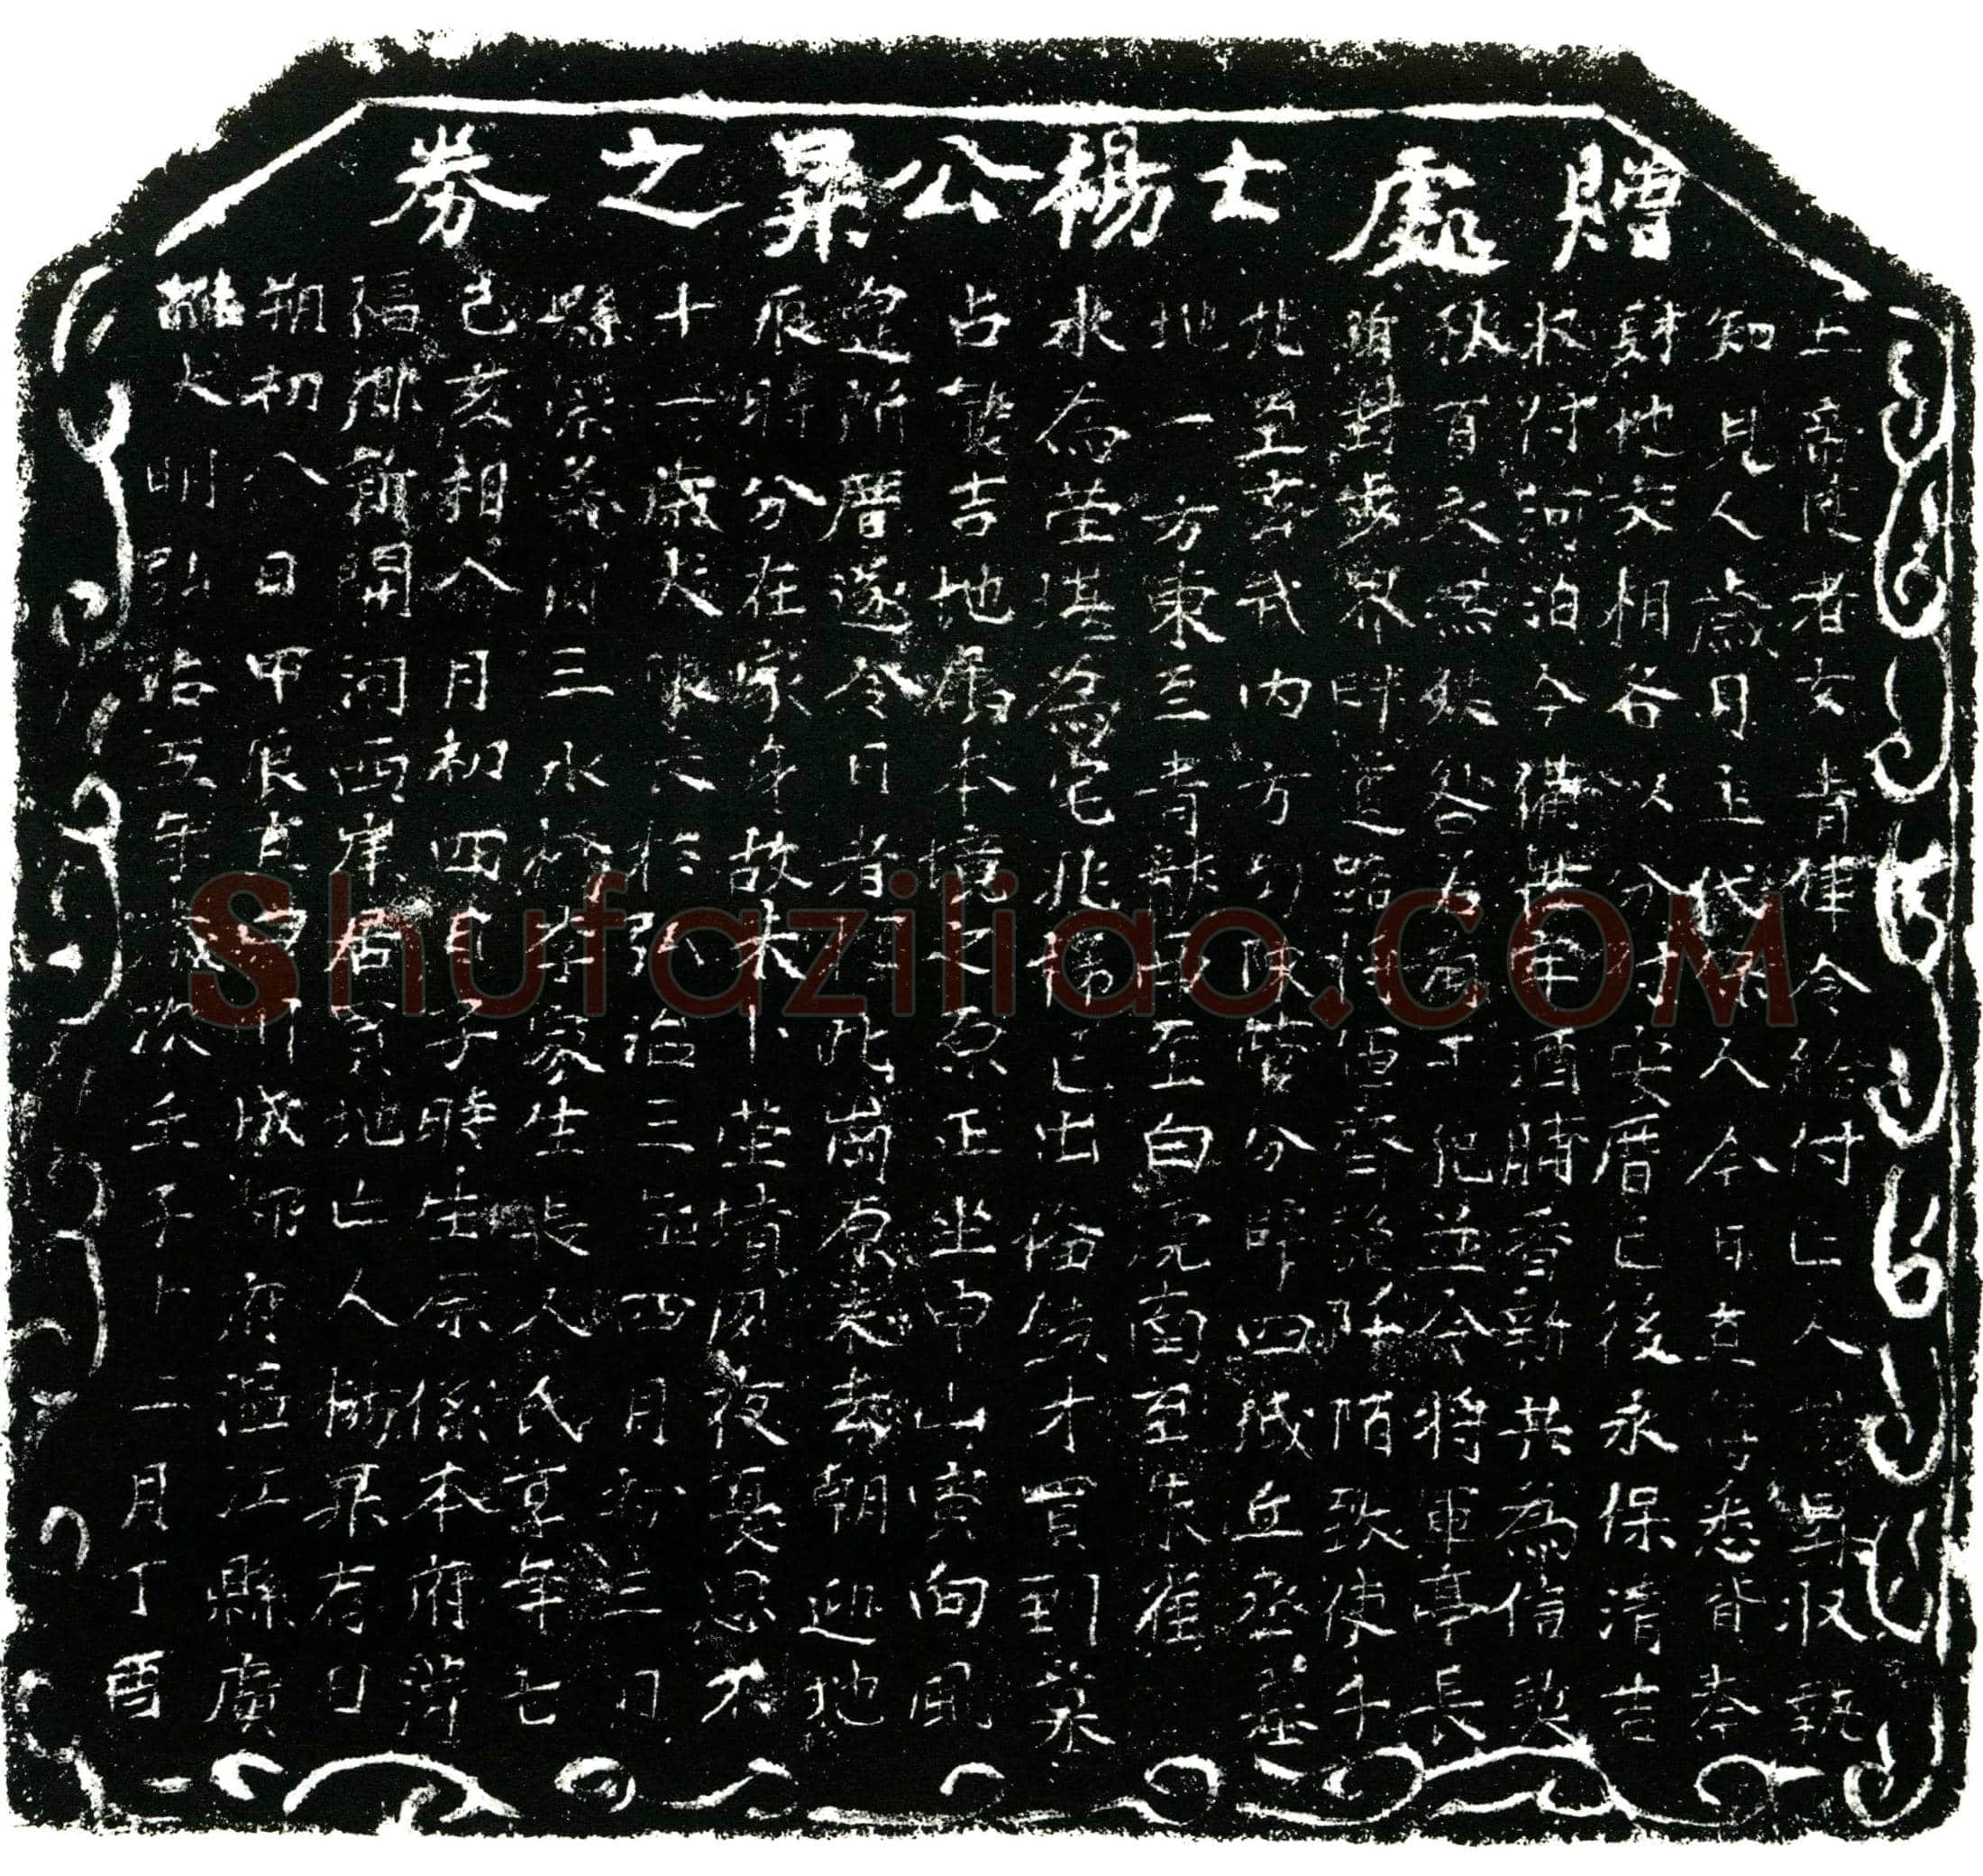 贈處士楊公昇之券
維大明弘治五年歲次壬子十二月丁酉
朔初八日甲辰直四川成都府溫江縣廣
福鄉前開河西岸居地亡人楊昇存日
己亥相八月初四日子時生原係本府灌
縣崇義三水村李家生長人氏享年七
十一歲大限亡於弘治三年四月初三日
辰時分在家身故未卜塋墳夙夜憂思不
遑所厝遂令日者擇此崗原來去朝迎地
占襲吉地屬本境之原正坐申山寅向風
水為塋堪為宅兆俻已出俗錢才買到某
地一方東至青龍西至白虎南至朱雀
北至玄武內方勾陳管分畔四域丘丞墓
封步界畔道路將軍齊整阡陌致使千
秋百久無殃咎若有干犯並令將軍亭長
收付河泊今備牲牢酒脯香新共為信契
財地交相各以分付安厝已後永保清吉
知見人歲月主代保人今日直符悉皆奉
上帝使者女青律令給付亡人楊昇收執